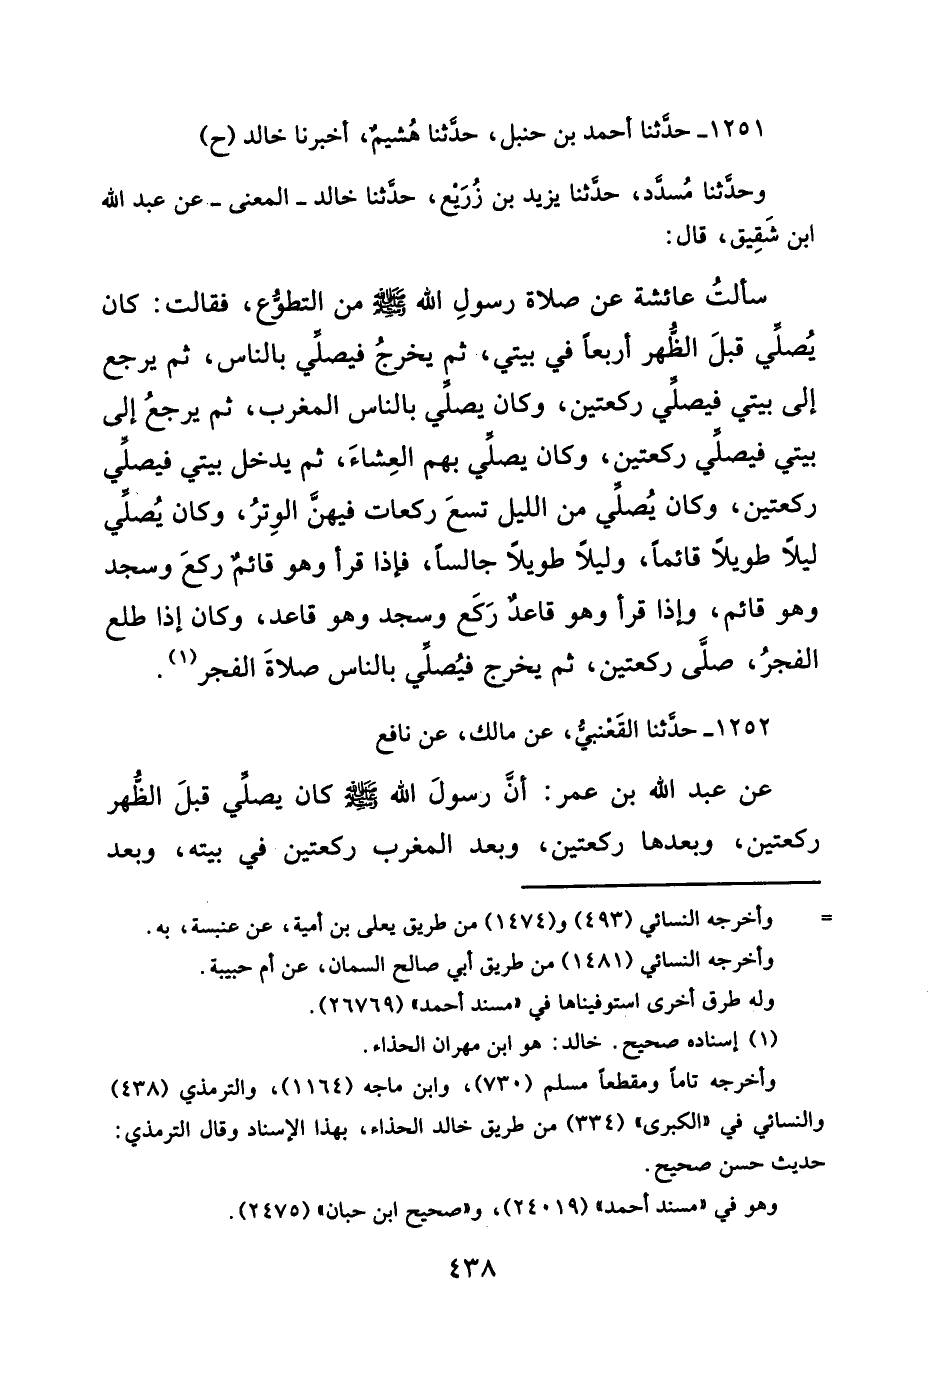 ١٢٥١ـ حدَّثنا أحمد بن حنبل، حدَّثنا هُشيمٌ، أخبرنا خالد (ح)
وحدَّثنا مُسدَّد، حدَّثنا يزيد بن زُرَيْع، حدَّثنا خالد ـ المعنى ـ عن عبد الله
ابن شَقِيق، قال:
سألتُ عائشة عن صلاة رسولِ الله ﷺ من التطوُّع، فقالت: كان
يُصلِّي قبلَ الظُّهر أربعاً في بيتي، ثم يخرجُ فيصلِّي بالناس، ثم يرجع
إلى بيتي فيصلِّي ركعتين، وكان يصلِّي بالناس المغرب، ثم يرجعُ إلى
بيتي فيصلِّي ركعتين، وكان يصلِّي بهم العِشاءَ، ثم يدخل بيتي فيصلِّي
ركعتين، وكان يُصلِّي من الليل تسعَ ركعات فيهنَّ الوِترُ، وكان يُصلِّي
ليلاً طويلاً قائماً، وليلاً طويلاً جالساً، فإذا قرأ وهو قائمٌ ركعَ وسجد
وهو قائم، وإذا قرأ وهو قاعدٌ رَكَع وسجد وهو قاعد، وكان إذا طلع
الفجرُ، صلَّى ركعتين، ثم يخرج فيُصلِّي بالناس صلاةَ الفجر(١).
١٢٥٢ـ حدَّثنا القَعْنبيُّ، عن مالك، عن نافع
عن عبد الله بن عمر: أنَّ رسولَ الله ﷺ كان يصلِّي قبلَ الظُّهر
ركعتين، وبعدها ركعتين، وبعد المغرب ركعتين في بيته، وبعد
= وأخرجه النسائي (٤٩٣) و(١٤٧٤) من طريق يعلى بن أمية، عن عنبسة، به.
وأخرجه النسائي (١٤٨١) من طريق أبي صالح السمان، عن أم حبيبة.
وله طرق أخرى استوفيناها في «مسند أحمد» (٢٦٧٦٩).
(١) إسناده صحيح. خالد: هو ابن مهران الحذاء.
وأخرجه تاماً ومقطعاً مسلم (٧٣٠)، وابن ماجه (١١٦٤)، والترمذي (٤٣٨)
والنسائي في «الكبرى» (٣٣٤) من طريق خالد الحذاء، بهذا الإسناد وقال الترمذي:
حديث حسن صحيح.
وهو في «مسند أحمد» (٢٤٠١٩)، و«صحيح ابن حبان» (٢٤٧٥).
٤٣٨